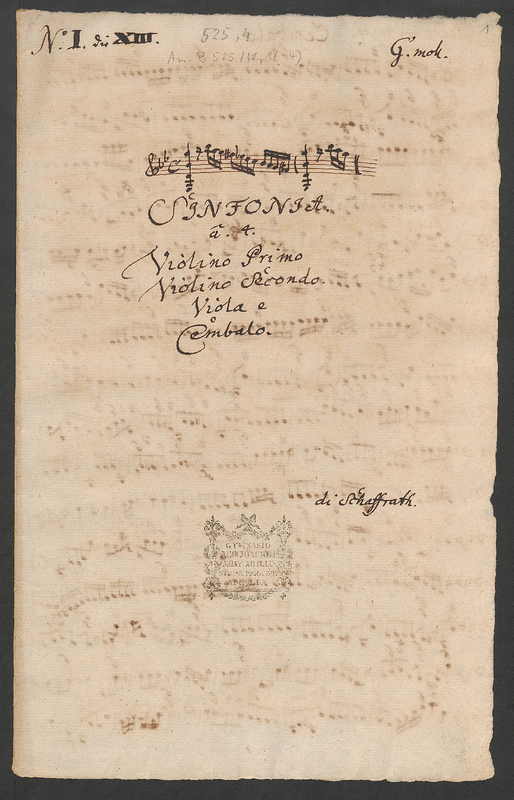 No. I. du XIII.
525,4
Am. B 525 (IV, 4)
G. moll.
1
SINFONIA.
à. 4.
Violino Primo
Violino Secondo.
Viola e
Cembalo.
di Schaffrath.
GYMNASIO
REG. IOACHIM
AMALIA